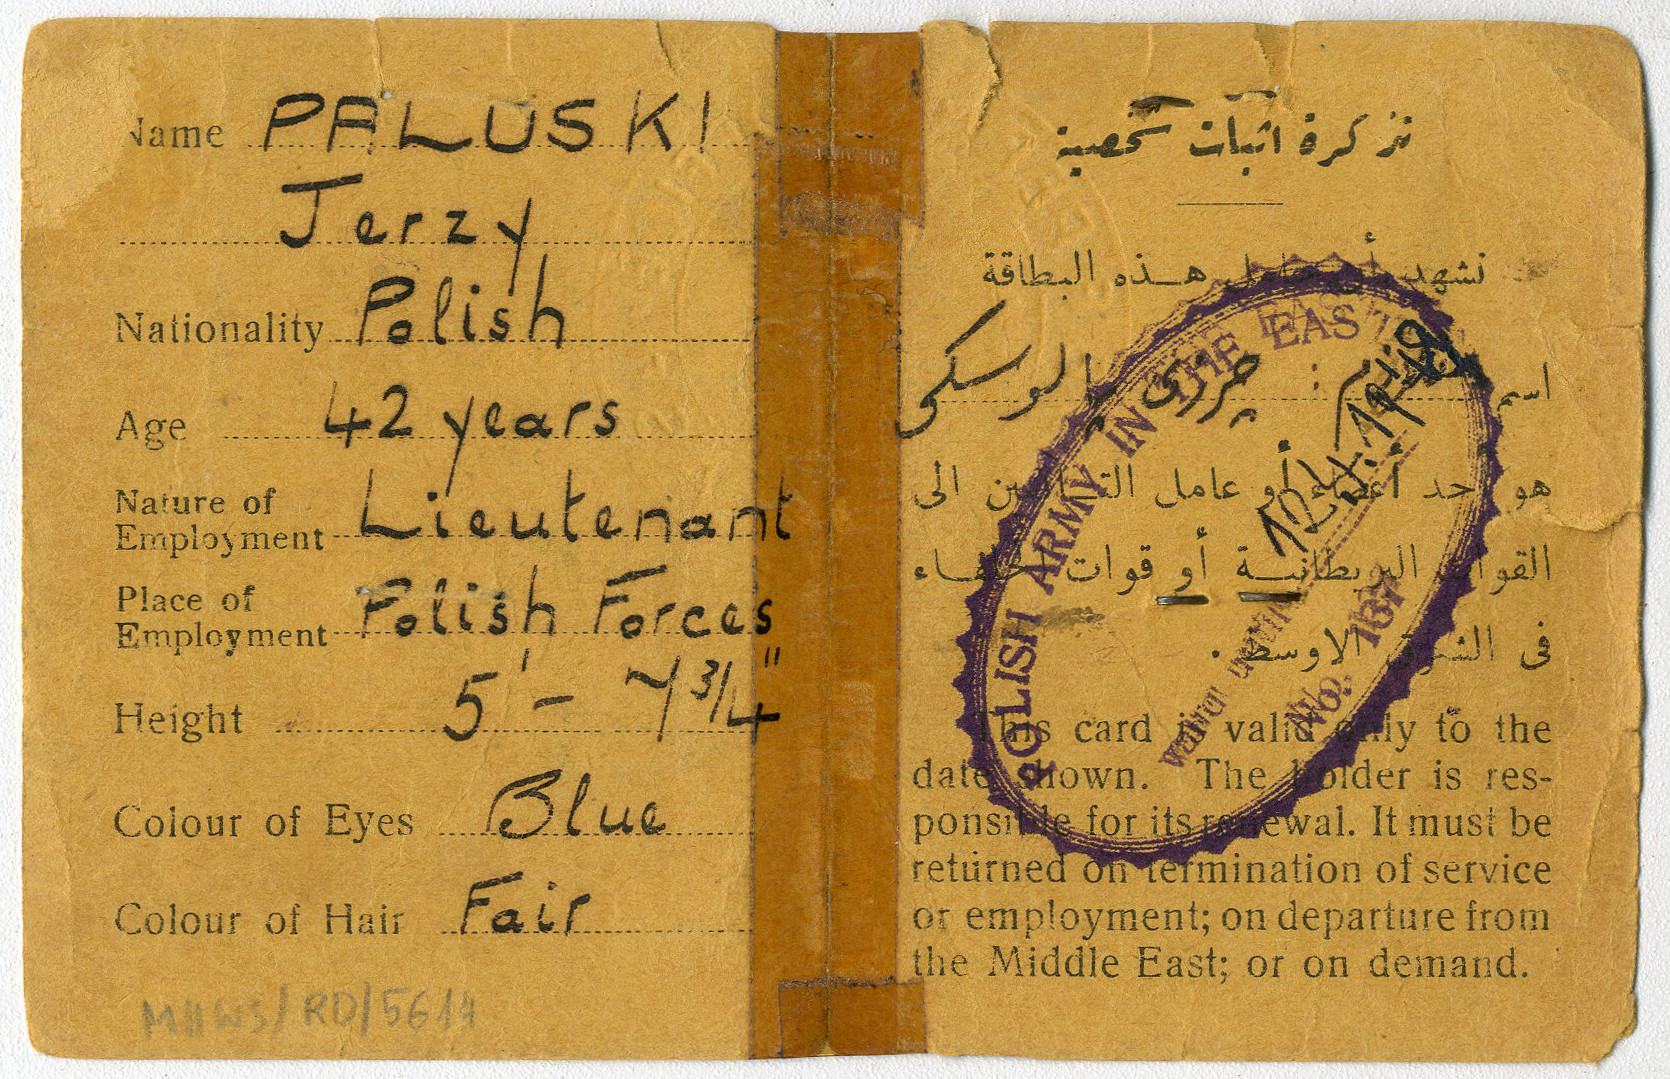 Name PALUSKI
Jerzy
Nationality Polish
Age 42 years
Nature of
Employment Lieutenant
Place of
Employment Polish Forces
Height 5' - 7 3/4"
Colour of Eyes Blue
Colour of Hair Fair
RD/56
تذكرة اثبات شخصية
نشهد أن حامل هذه البطاقة
اسم : جرزى بالوسكى
هو احد أعضاء أو عامل التابعين الى
القوات البريطانية أو قوات الحلفاء
فى الشرق الاوسط .
POLISH ARMY IN THE EAST
No. 137
This card is valid only to the
date shown. The holder is res-
ponsible for its renewal. It must be
returned on termination of service
or employment; on departure from
the Middle East; or on demand.